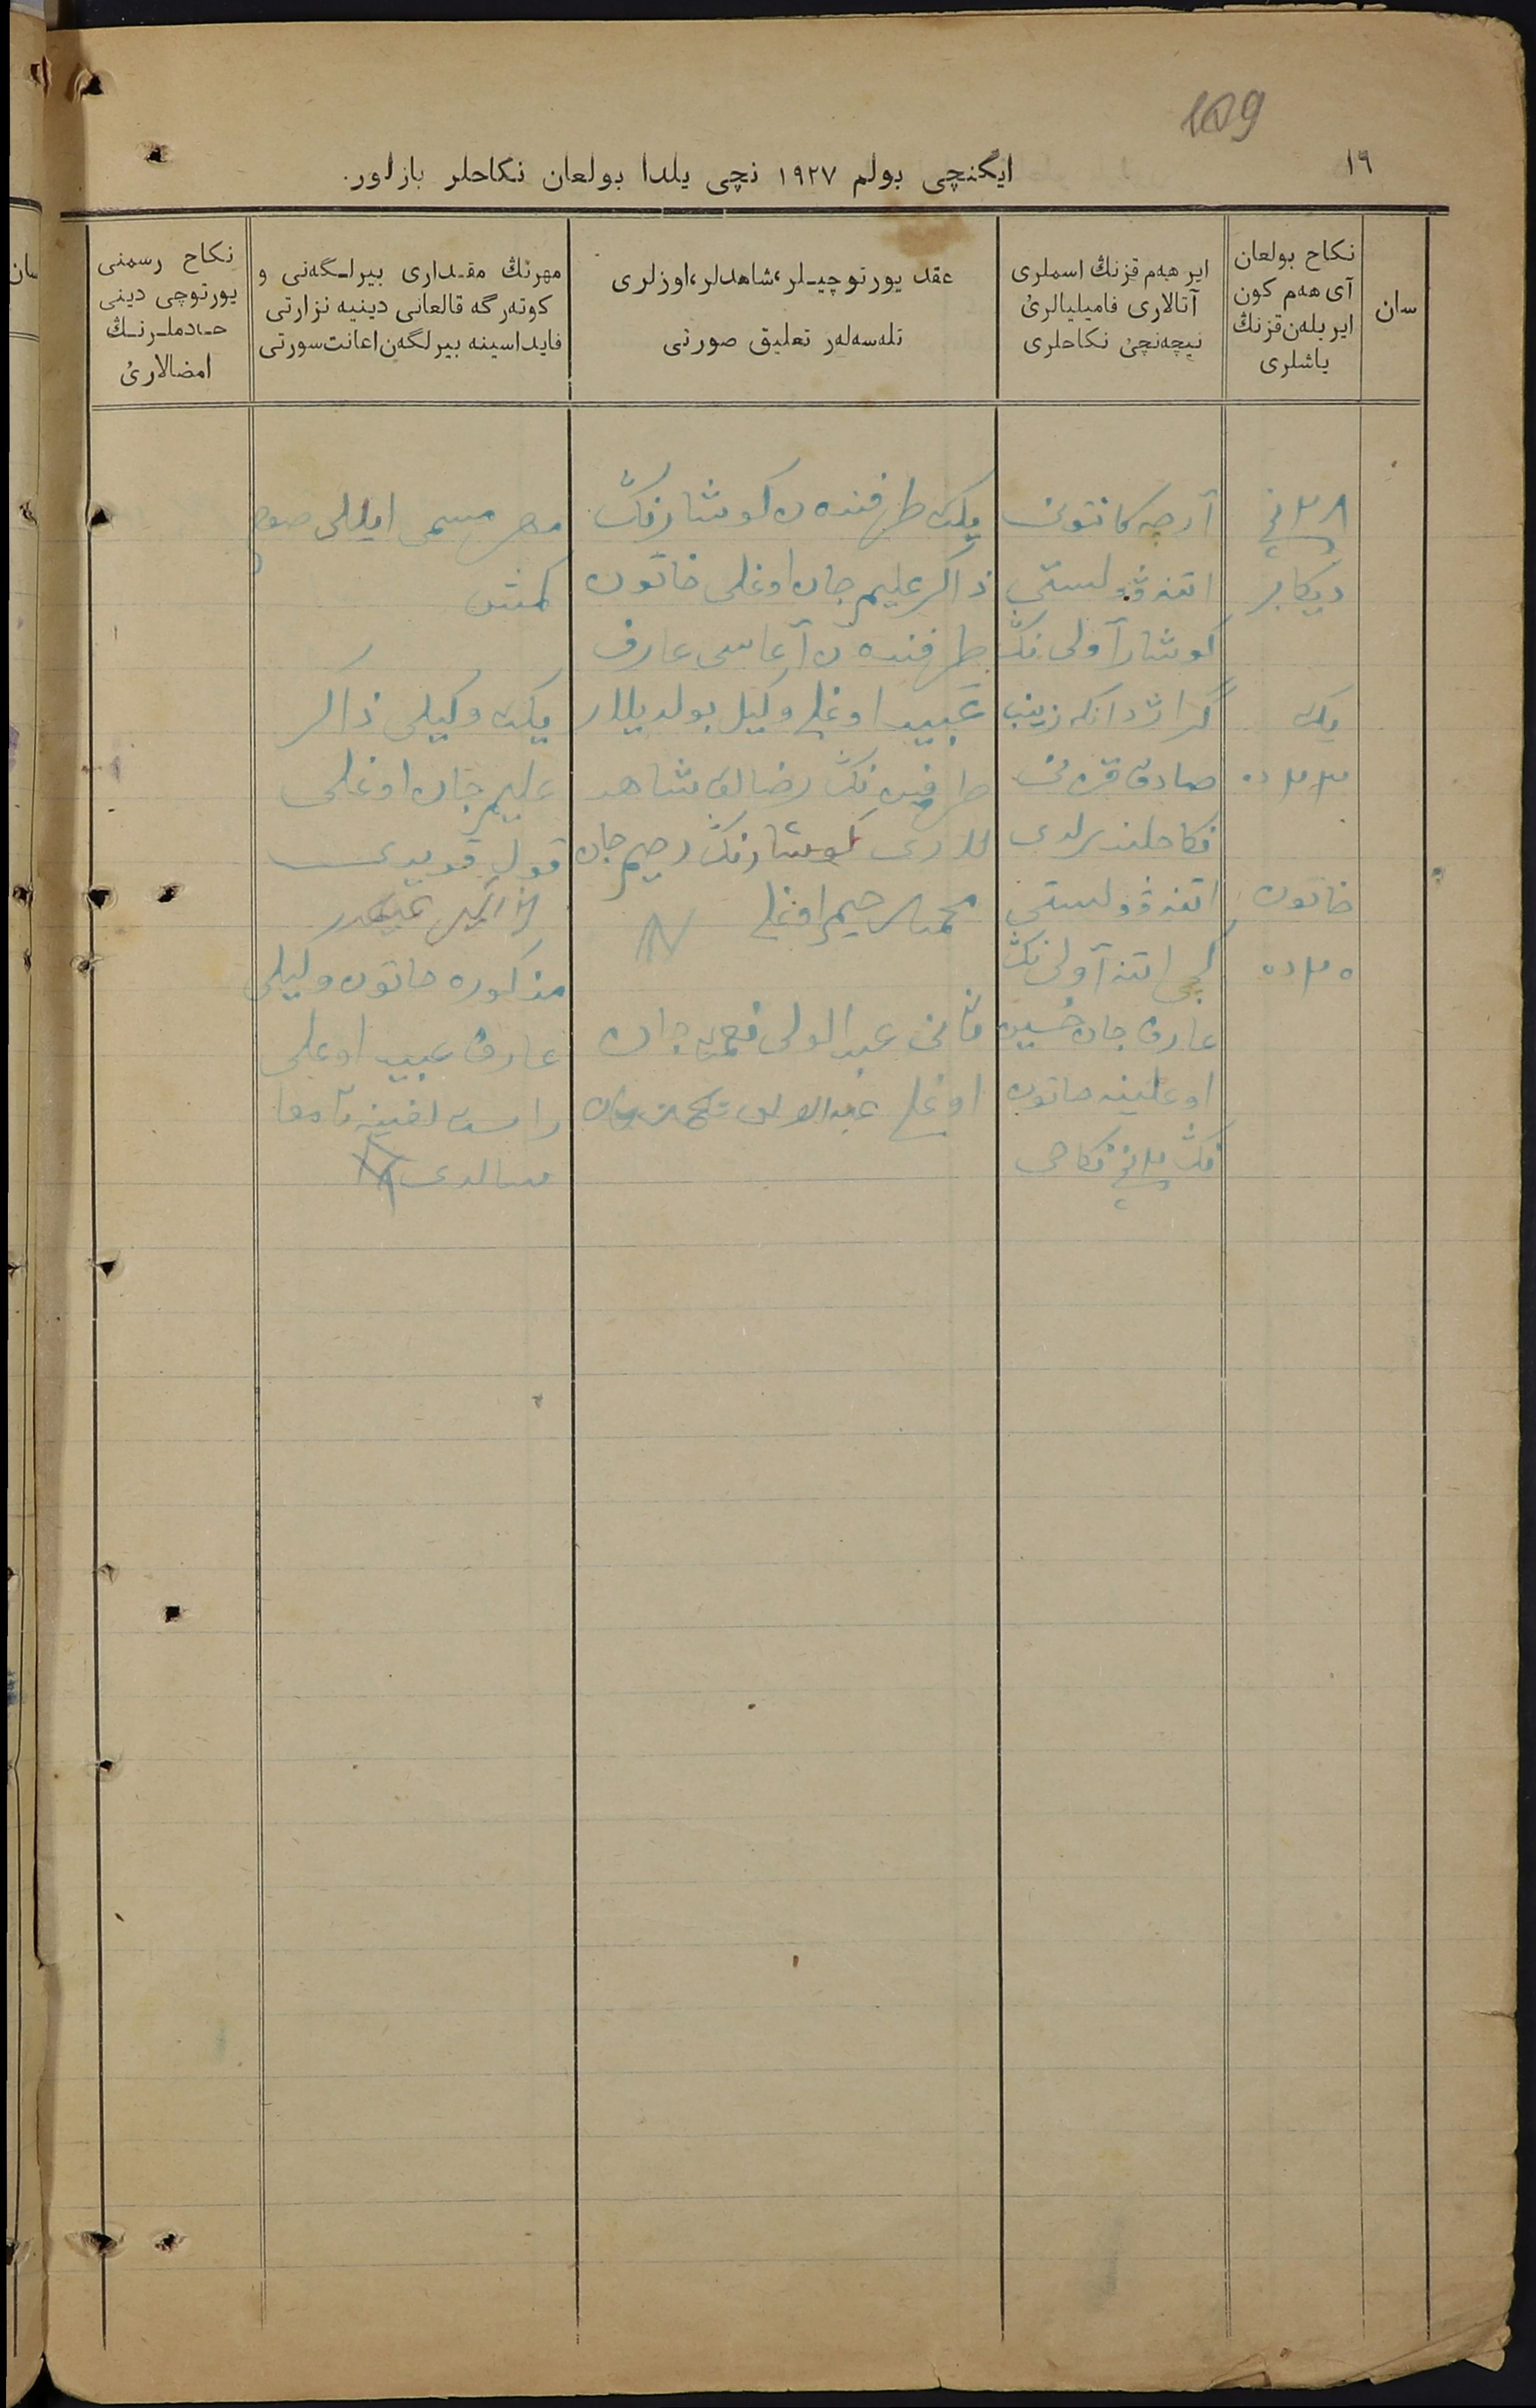 109
١٩
ایگنچی بولم ١٩٢٧ نچی یلدا بولعان نکاحلر یازلور.
سان
نکاح بولعان
آی هەم کون
ایر بلەن قزنڭ
یاشلری
ایر هەم قزنڭ اسملری
آتالاری فامیلیالرئ
نیچەنچئ نکاحلری
عقد یورتوچیـلر،شاهدلر،اوزلری
تلەسەلەر تعلیق صورتی
مهرنڭ مقـداری بیرلـگەنی و
کوتەرگە قالعانی دینیە نزارتی
فایداسینه بیرلگەن اعانت سورتی
نکاح رسمنی
یورتوچی دینی
خـادملـرنـڭ
امضالارئ
٢٨ نچی
دیکابر
یکت
٢٣ ده
خاتون
٢٥ ده
آرچه کانتونی
اتنه ۋولستی
کوشار آولی نڭ
گراژدانکه زینب
صادق قزنی
نکاحلندرلدی
اتنه ۋولستی
کچی اتنه آولی نڭ
عارف جان حسین
اوغلینه خاتون
نڭ ٢ نچی نکاحی
یکت طرفندەن کوشارنڭ
ذاکر علیم جان اوغلی خاتون
طرفندەن آغاسی عارف
عبید اوغلی وکیل بولدیلار
طرفین نڭ رضالغی شاهد
لاردی کوشارنڭ رحیم جان
محمد رحیم اوغلی
عبدالولی
اوغلی
مهر مسمی ایللی صوم
کمش
یکت وکیلی ذاکر
علیم جان اوغلی
قول قویدی
مذکوره خاتون وکیلی
عارف عبید اوغلی
سالدی